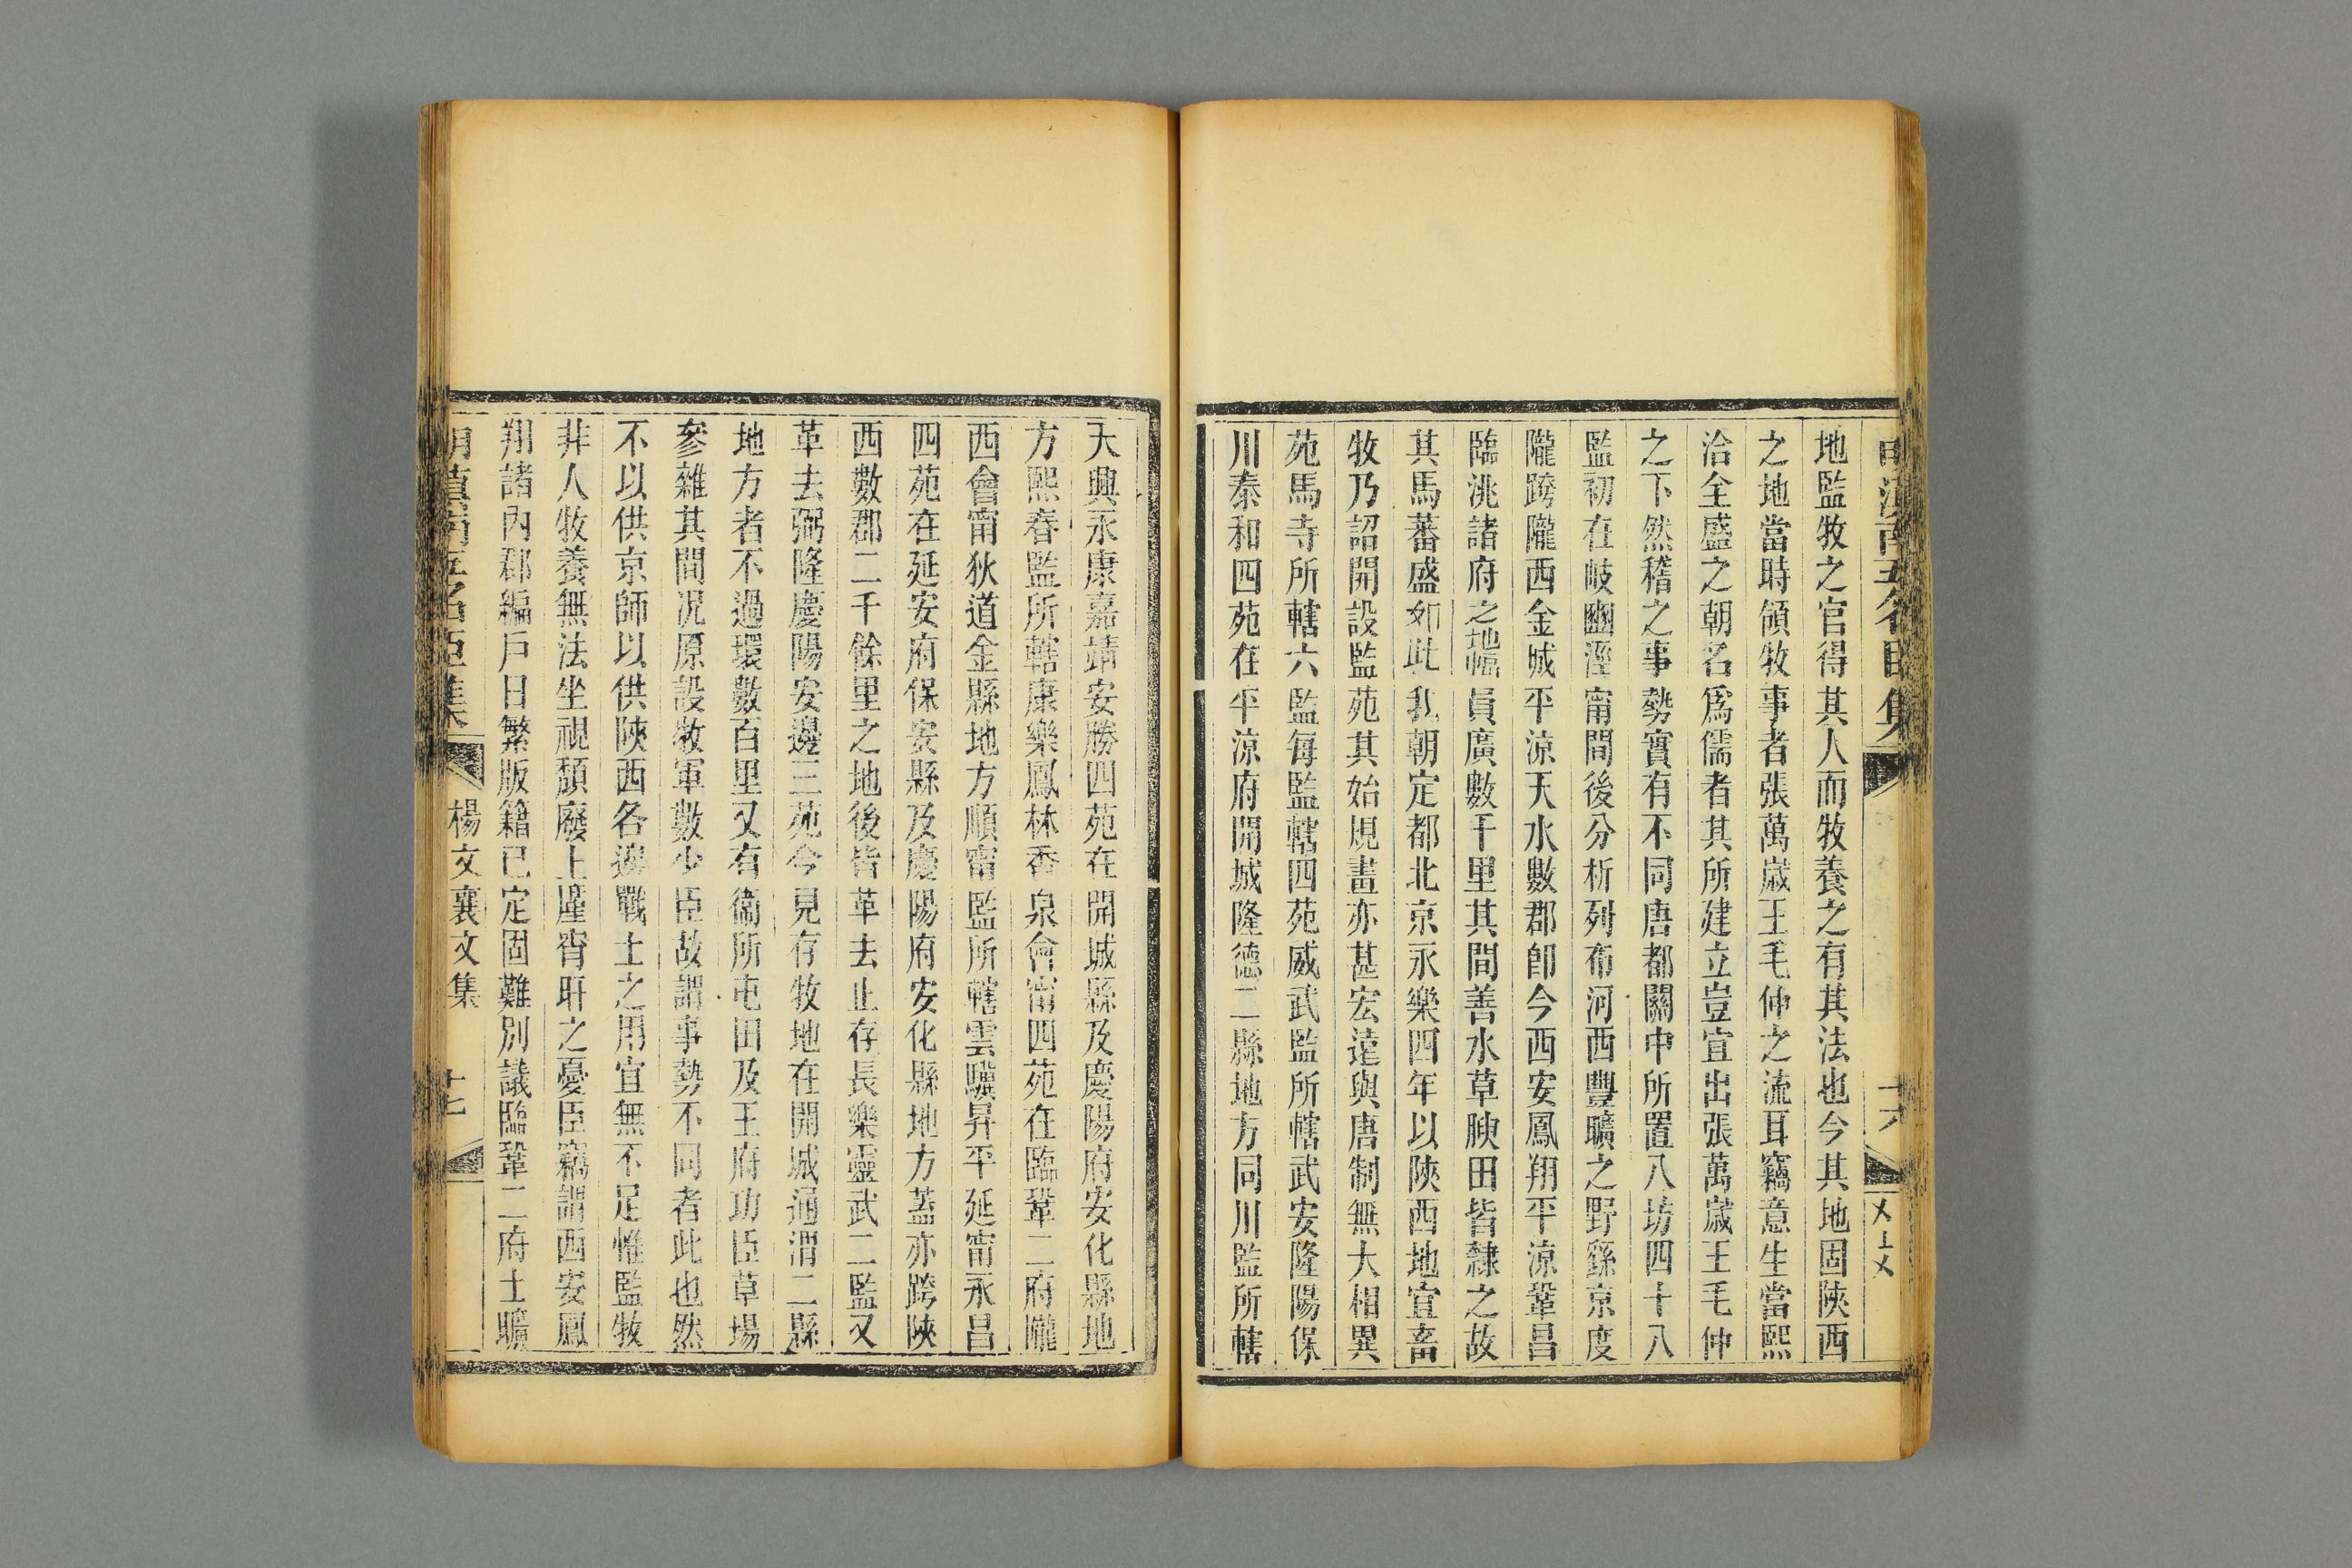 地監牧之官得其人而牧養之有其法也今其地固陝西
之地當時領牧事者張萬歲王毛仲之流耳竊意生當熙
洽全盛之朝名爲儒者其所建立豈宜出張萬歲王毛仲
之下然稽之事勢實有不同唐都關中所置八坊四十八
監初在岐豳涇甯間後分析列布河西豐曠之野繇京度
隴跨隴西金城平涼天水數郡卽今西安鳳翔平涼鞏昌
臨洮諸府之地幅員廣數千里其間善水草腴田皆隸之故
其馬蕃盛如此我朝定都北京永樂四年以陝西地宜畜
牧乃詔開設監苑其始規畫亦甚宏遠與唐制無大相異
苑馬寺所轄六監每監轄四苑威武監所轄武安隆陽保
川泰和四苑在平涼府開城隆德二縣地方同川監所轄
大興永康嘉靖安勝四苑在開城縣及慶陽府安化縣地
方熙春監所轄康樂鳳林香泉會甯四苑在臨鞏二府隴
西會甯狄道金縣地方順甯監所轄雲驥昇平延甯永昌
四苑在延安府保安縣及慶陽府安化縣地方蓋亦跨陝
西數郡二千餘里之地後皆革去止存長樂靈武二監又
革去弼隆慶陽安邊三苑今見存牧地在開城通渭二縣
地方者不過環數百里又有衞所屯田及王府功臣草場
參雜其間况原設牧軍數少臣故謂事勢不同者此也然
不以供京師以供陝西各邊戰士之用宜無不足惟監牧
非人牧養無法坐視頹廢上廑宵旰之憂臣竊謂西安鳳
翔諸內郡編戶日繁版籍已定固難別議臨鞏二府土曠
楊文襄文集
十七